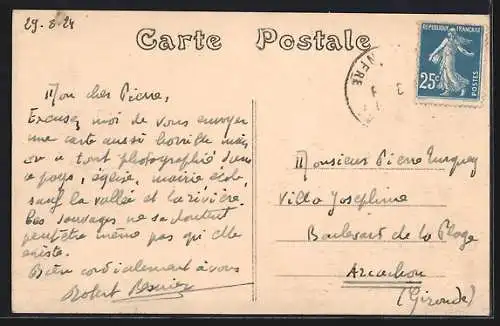 29-8-24
Carte Postale
RÉPUBLIQUE FRANÇAISE
25c
POSTES
Mon cher Pierre,
Excusez moi de vous envoyer
une carte aussi horrible mais
on a tout photographié dans
ce pays, église, mairie école,
sauf la vallée et la rivière.
Ces sauvages ne se doutent
peut être même pas qu'elle
existe.
Bien cordialement à vous
Robert
Monsieur Pierre
Villa Joséphine
Boulevard de la Plage
Arcachon
(Gironde)